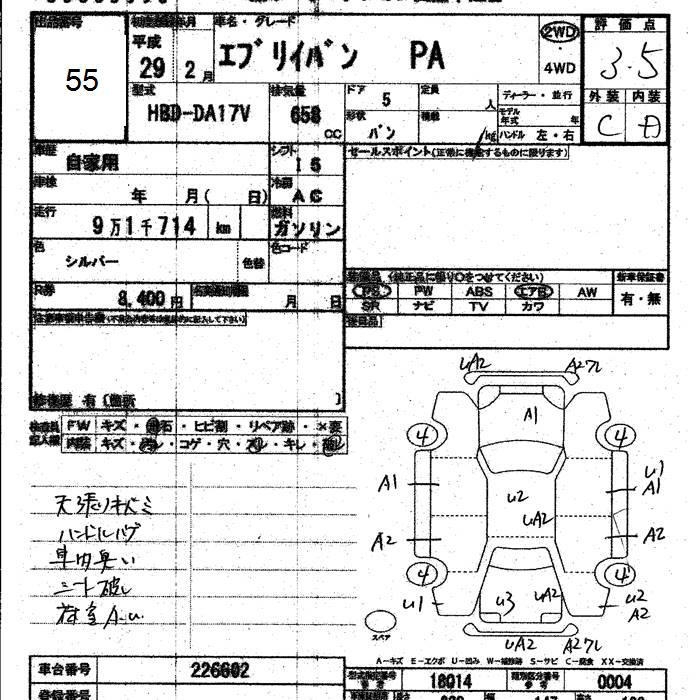 出品番号 初度登録年月 車名・グレード 評価点
55
平成
29 2月
エブリイバン PA
2WD
・
4WD
3.5
型式 排気量 ドア 定員 ディーラー・並行 外装 内装
HBD-DA17V 658 cc
5 人
形状 積載 モデル年式 年
バン kg ハンドル 左・右
C D
車歴 シフト セールスポイント(正常に機能するものに限ります)
自家用 I 5
車検 冷房
年 月( 日) AC
走行 燃料
9万1千714 km ガソリン
色 色替 色コード
シルバー
装備品 (純正品に限り○をつけてください) 新車保証書
PS PW ABS エアB AW 有・無
SR ナビ TV カワ
R券
8,400円 月 日
後日品
修復歴 有(箇所 )
検査員記入欄 FW キズ・飛石・ヒビ割・リペア跡・×要
内装 キズ・汚レ・コゲ・穴・スレ・キレ
天張リキバミ
ハンドルハゲ
車内臭い
シート破レ
荷室A.u.
UA2 A2ワレ
A1
4 4
A1 U2 UA2 U1 A1
A2 A2
4 4
U1 U3 UA2 U2 A2
スペア
UA2 A2ワレ
A-キズ E-エクボ U-凹み W-補修跡 S-サビ C-腐食 XX-交換済
車台番号 226602
型式指定番号 18014 類別区分番号 0004
登録番号 長さ 幅 147 高さ